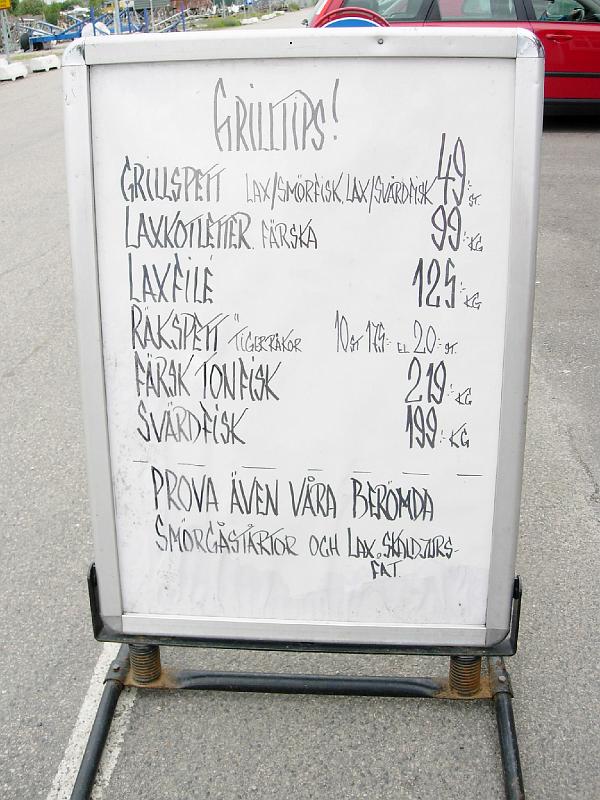 GRILLTIPS!
GRILLSPETT LAX/SMÖRFISK, LAX/SVÄRDFISK 49:- ST.
LAXKOTLETTER. FÄRSKA 99:- KG
LAXFILÉ 125:- KG
RÄKSPETT "TIGERRÄKOR 10 ST 175:- EL 20:- ST.
FÄRSK TONFISK 219:- KG
SVÄRDFISK 199:- KG
PROVA ÄVEN VÅRA BERÖMDA
SMÖRGÅSTÅRTOR OCH LAX, SKALDJURS-
FAT.